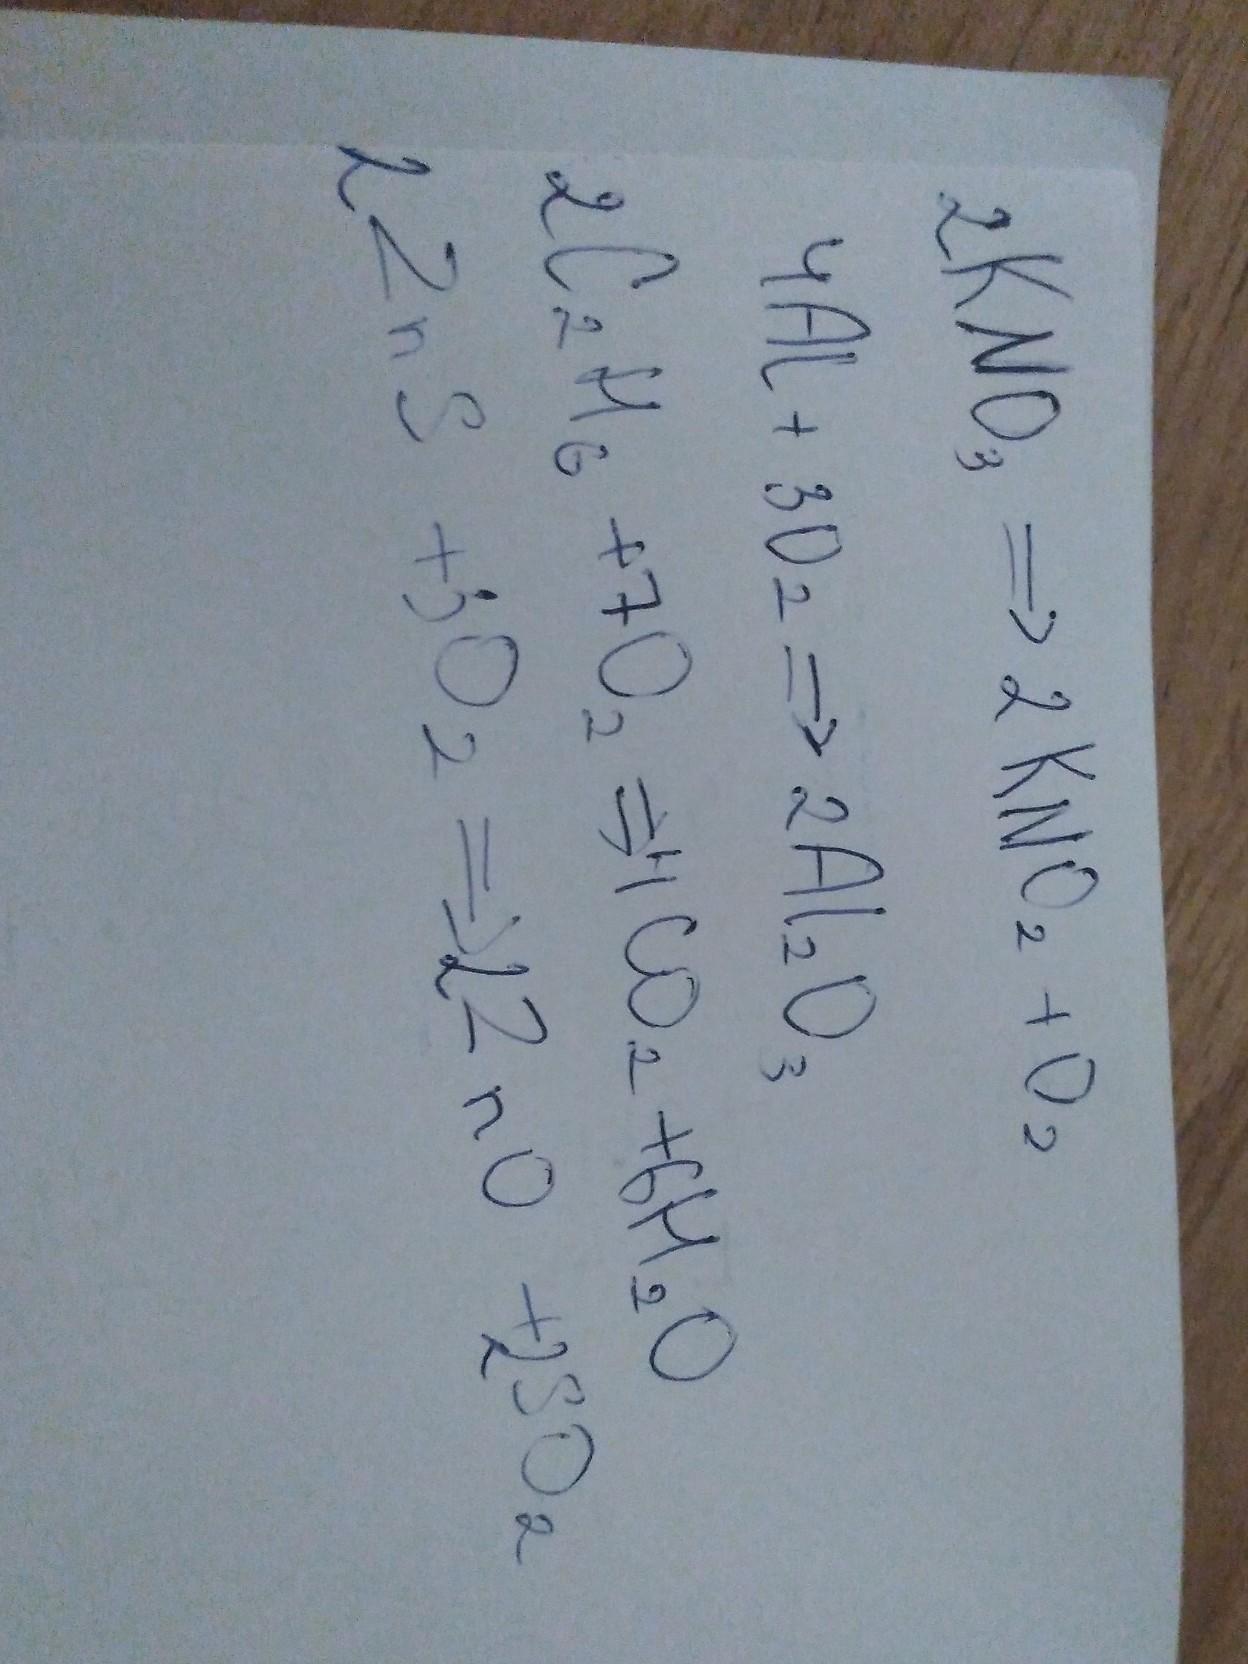 2KNO₃ ⇒ 2KNO₂ + O₂
4Al + 3O₂ ⇒ 2Al₂O₃
2C₂H₆ + 7O₂ ⇒ 4CO₂ + 6H₂O
2ZnS + 3O₂ ⇒ 2ZnO + 2SO₂